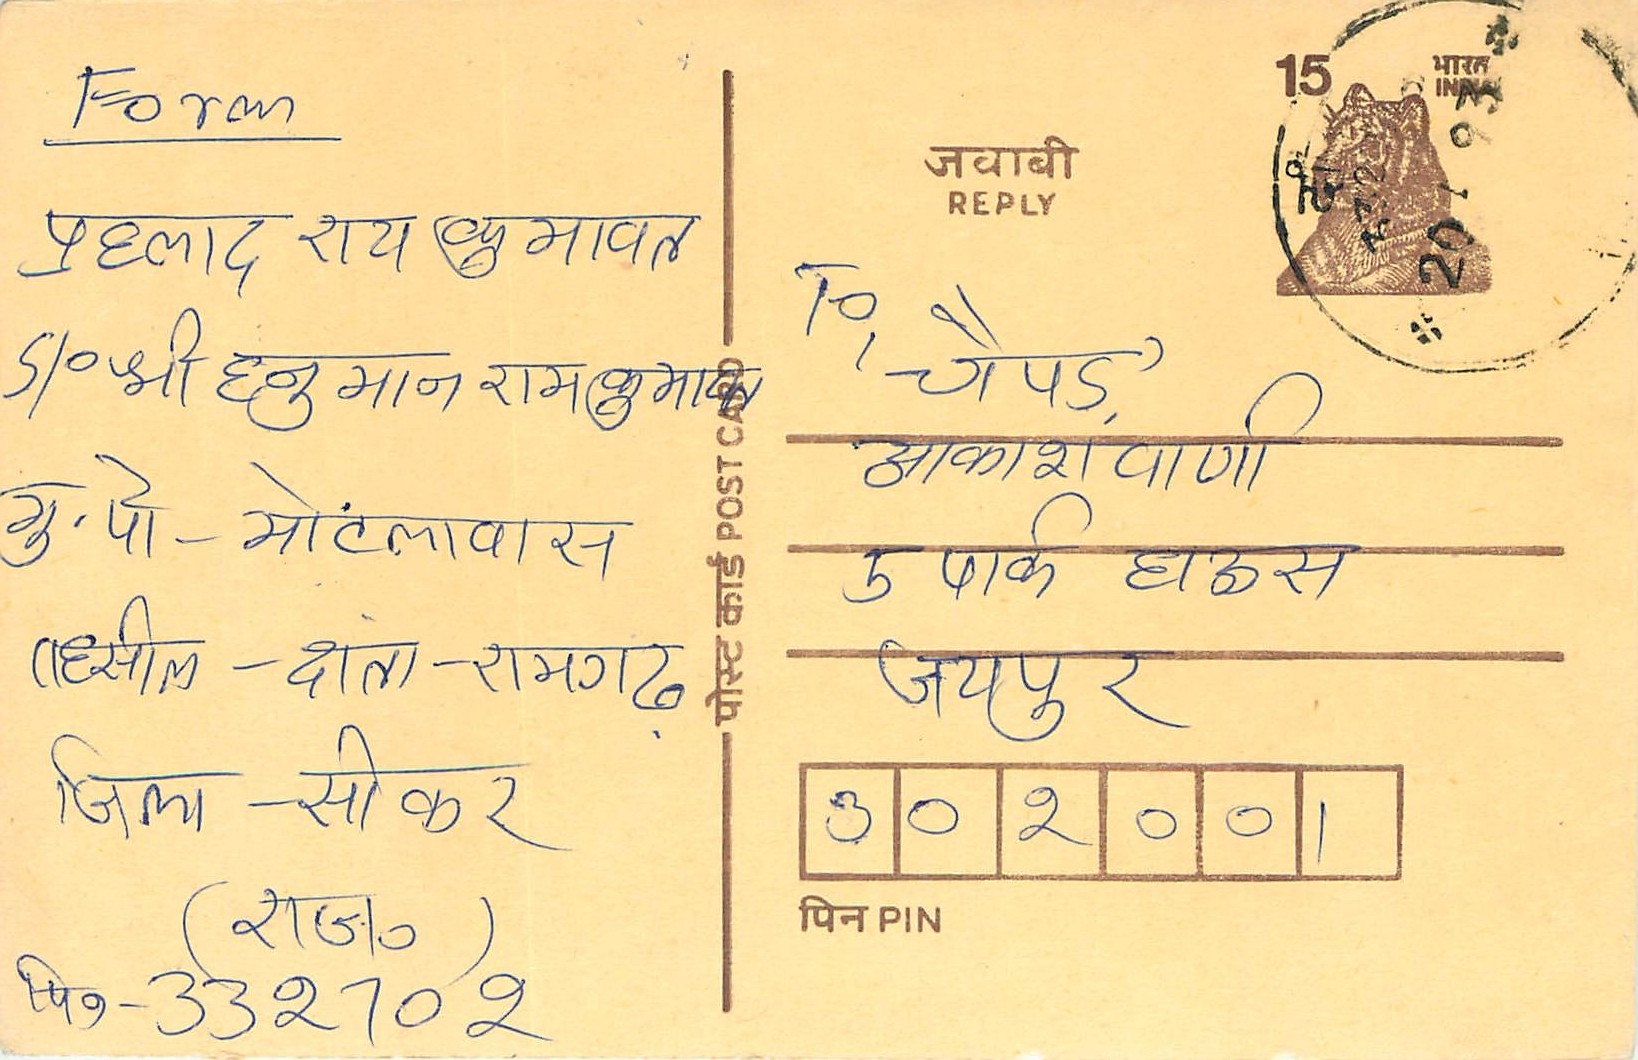 Form
प्रहलाद राय कुमावत
S/० श्री हनुमान राम कुमावत
मु. पो - मोटलावास
तहसील - दांता - रामगढ़
जिला - सीकर
(राज०)
पिन - 332702
पोस्ट कार्ड POST CARD
15
भारत
INDIA
जवाबी
REPLY
20 93
To,
चौपड़
आकाशवाणी
5 पार्क हाऊस
जयपुर
302001
पिन PIN